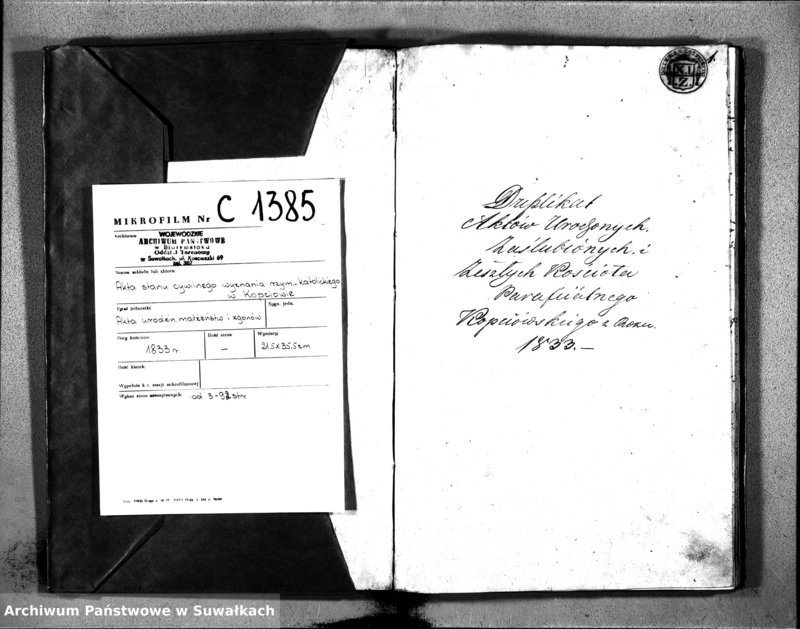 MIKROFILM Nr C 1385
Archiwum
WOJEWÓDZKIE
ARCHIWUM PAŃSTWOWE
w Białymstoku
Oddział Terenowy
w Suwałkach, ul. Kościuszki 69
Nazwa zespołu lub zbioru
Akta stanu cywilnego wyznania rzym-katolickiego
w Kopciowie
Tytuł jednostki:
Sygn. jedn.
Akta urodzin, małżeństw i zgonów
Daty końcowe:
Ilość stron
Wymiary:
1833 r
—
21,5x35,5cm
Ilość klatek
Wypełnia k. z. stacji mikrofilmowej
Wykaz stron niezapisanych: od 3-92 str
Duplikat
Aktów Urodzonych.
Zaślubionych i
Zeszłych Kościoła
Parafiialnego
Kopciowskiego z Roku.
1833.—
Archiwum Państwowe w Suwałkach